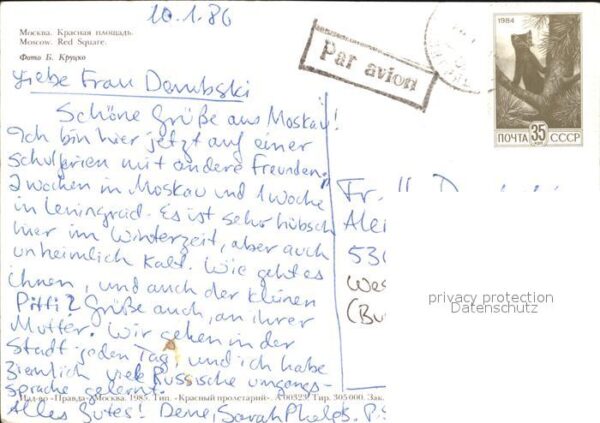 10.1.86
Москва. Красная площадь.
Moscow. Red Square.
Фото Б. Круцко
Par avion
1984
ПОЧТА 35 СССР
Liebe Frau Dembski
Schöne Grüße aus Moskau!
Ich bin hier jetzt auf einer
schulferien mit andere Freunden,
2 wochen in Moskau und 1 woche
in Leningrad. Es ist sehr hübsch
hier im Winterzeit, aber auch
unheimlich kalt. Wie geht es
ihnen, und auch der kleinen
Piffi? Grüße auch, an ihrer
Mutter. Wir gehen in der
Stadt jeden Tag, und ich habe
ziemlich viele Russische umgangs-
sprache gelernt.
Alles Gutes! Deine, Sarah Phelps. P.S
Fr.
Alei
530
Wes
(Bu
privacy protection
Datenschutz
Изд-во «Правда» Москва. 1985. Тип. «Красный пролетарий». А 00323. Тир. 305 000. Зак.